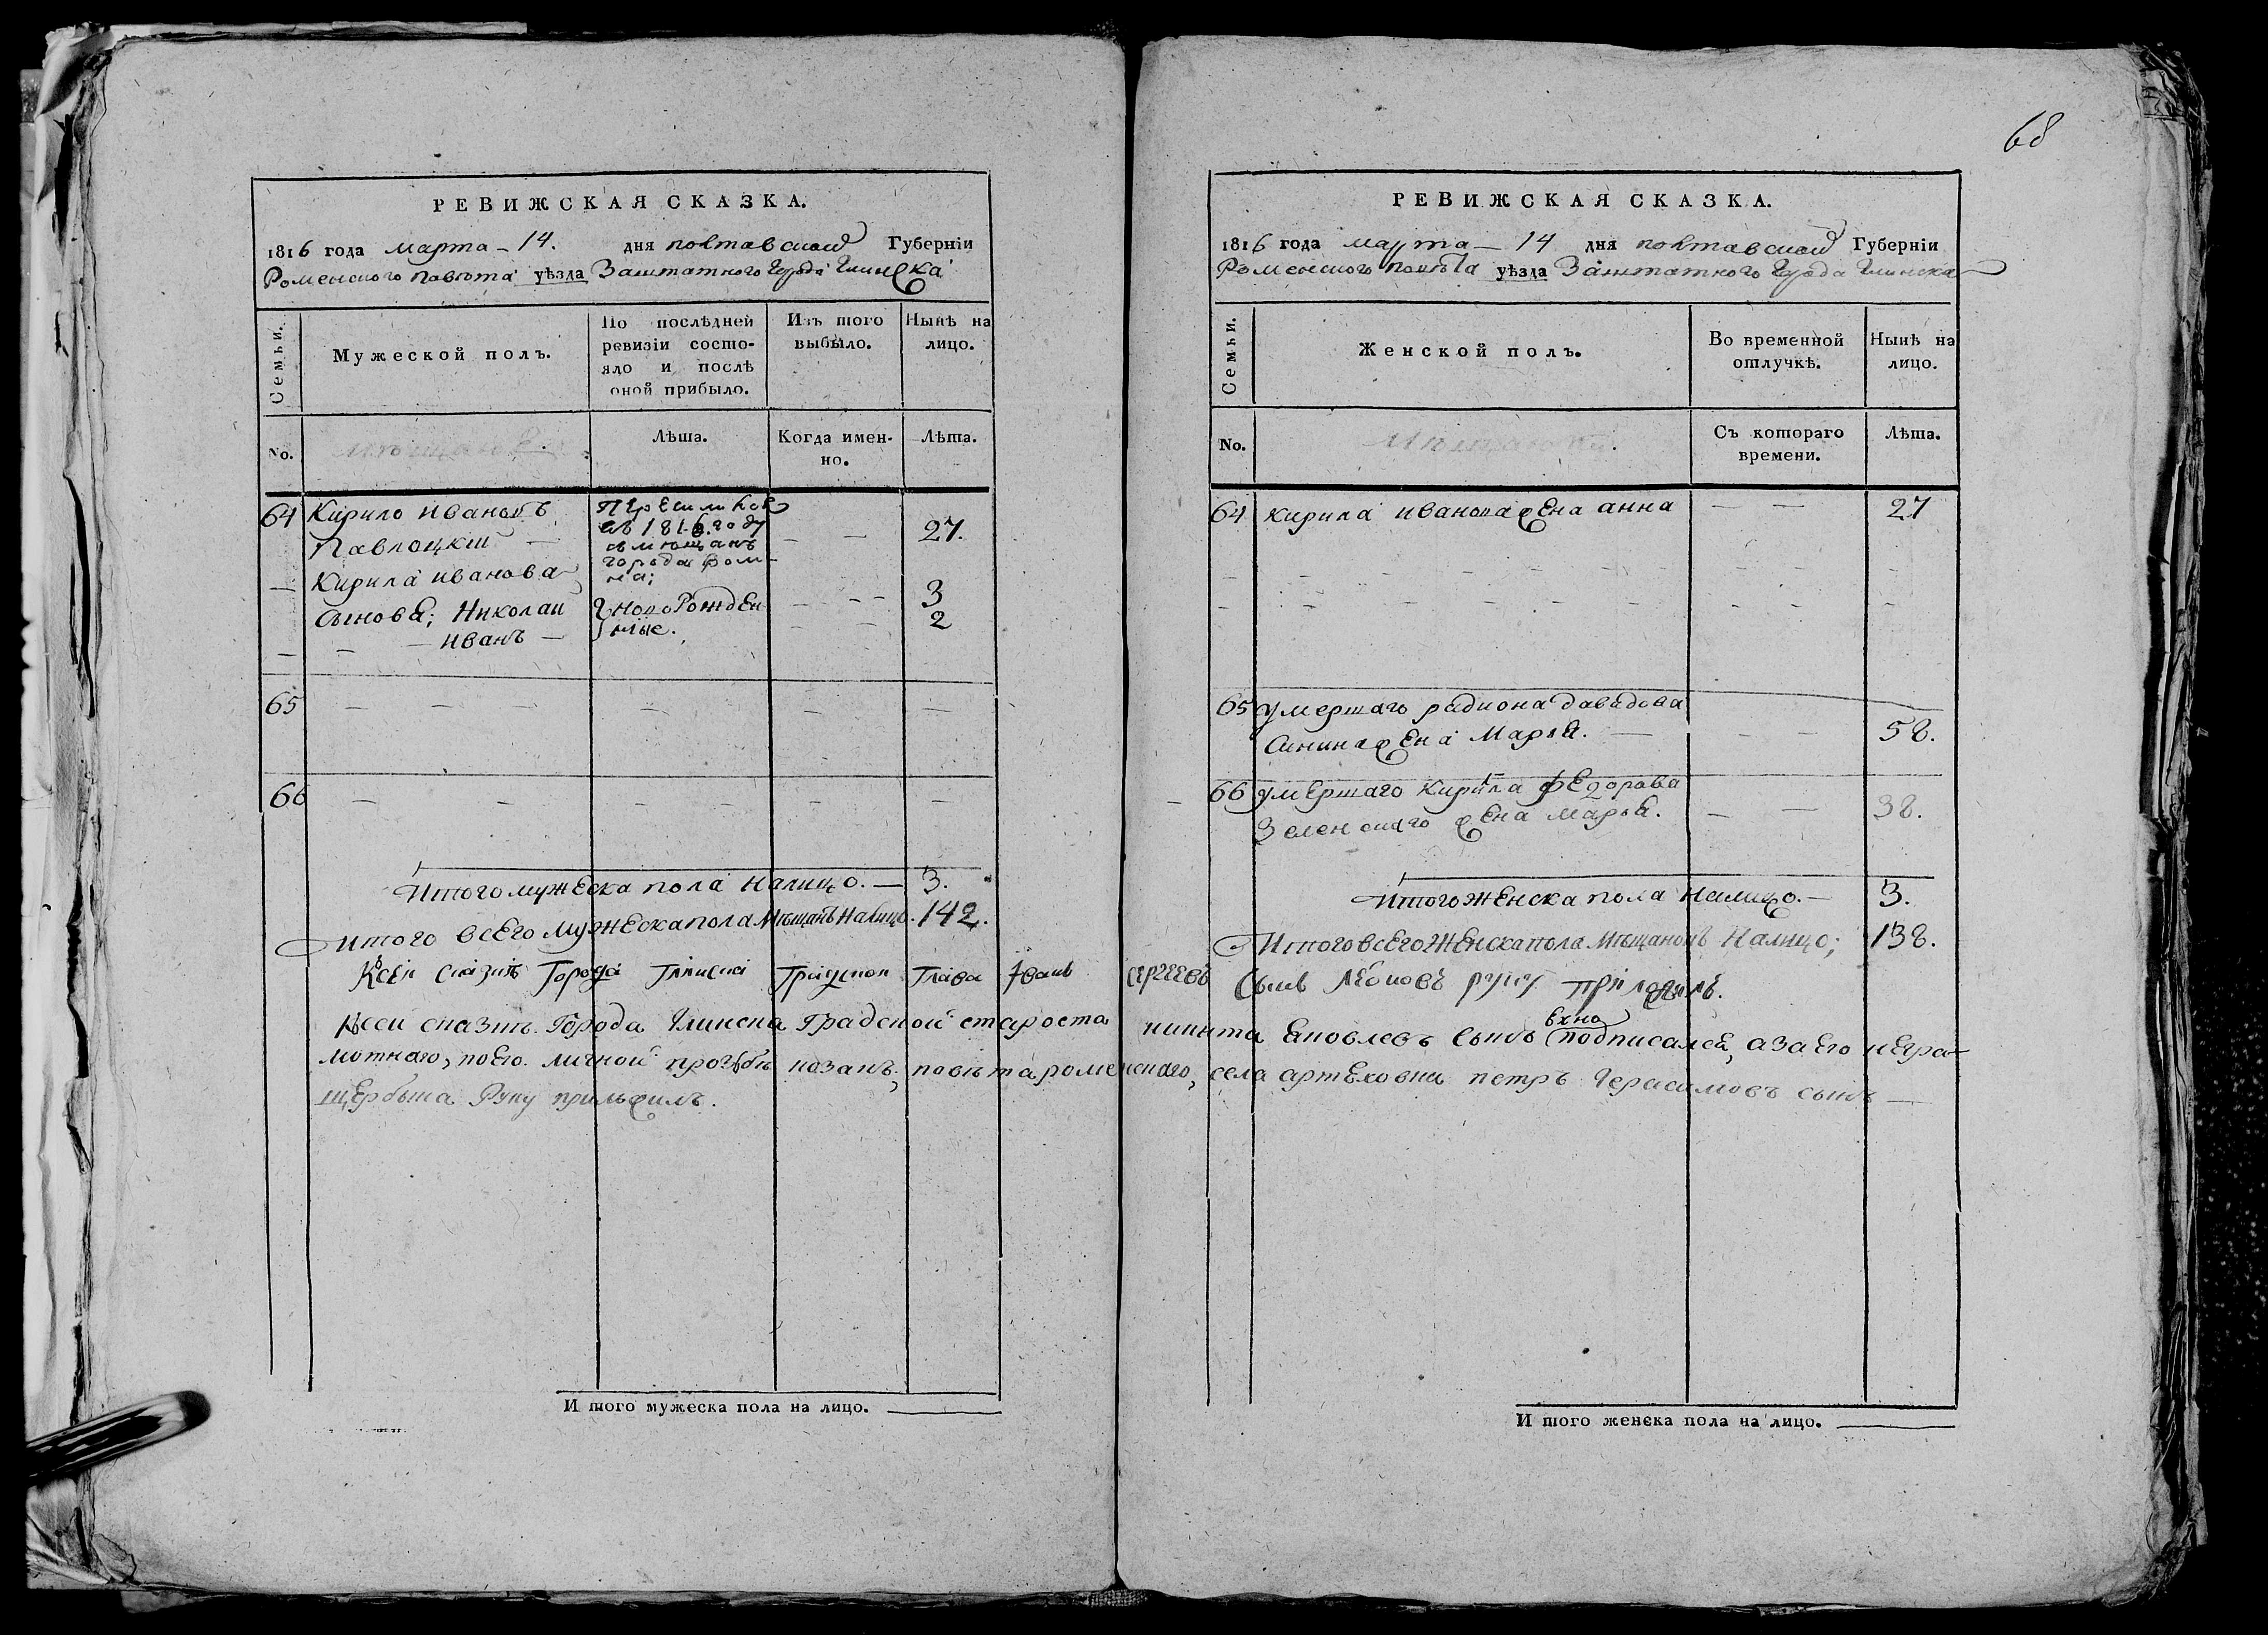 68
РЕВИЖСКАЯ СКАЗКА.
1816 года марта - 14. дня полтавской Губерніи
Роменского повѣта уѣзда Заштатного города Глинска
Семьи.
Мужеской полъ.
По послѣдней ревизіи состояло и послѣ оной прибыло.
Изъ того выбыло.
Нынѣ на лицо.
No.
Лѣта.
Когда именно.
Лѣта.
64 Кирило Ивановъ
Павлоцкий — — — 27.
въ 1816. году
съ мещанъ
города ром-
на;
— Кирила иванова
сынова; Николай новорожден — — 3
— — иванъ — ные. — — 2
65 — — — — — — — —
66 — — — — — — — —
Итого мужеска пола налицо. — 3.
итого всего мужеска пола мѣщанъ налицо. 142.
РЕВИЖСКАЯ СКАЗКА.
1816 года марта — 14 дня полтавской Губерніи
Роменского повѣта уѣзда Заштатного города Глинска
Семьи.
Женской полъ.
Во временной отлучкѣ.
Нынѣ на лицо.
No.
Съ котораго времени.
Лѣта.
64 кирила иванова жена анна — — 27
65 умершаго радиона давидова
жена Марья. — — — 58.
66 умершаго кирила федорова
Зеленскаго жена марья. — — 38.
Итого женска пола налицо. — 3.
Итого всего женска пола мѣщанокъ налицо; 138.
Къ сей сказкѣ города Глинска Градской Глава Иванъ Сергеевъ сынъ руку приложилъ.
Къ сей сказкѣ города Глинска Градской староста никита Яковлевъ сынъ подписался, а за его негра-
мотнаго, по его личной прозбѣ повѣта роменскаго, села артюховки петръ Герасимовъ сынъ —
щербина руку приложилъ.
И того мужеска пола на лицо.
И того женска пола на лицо.